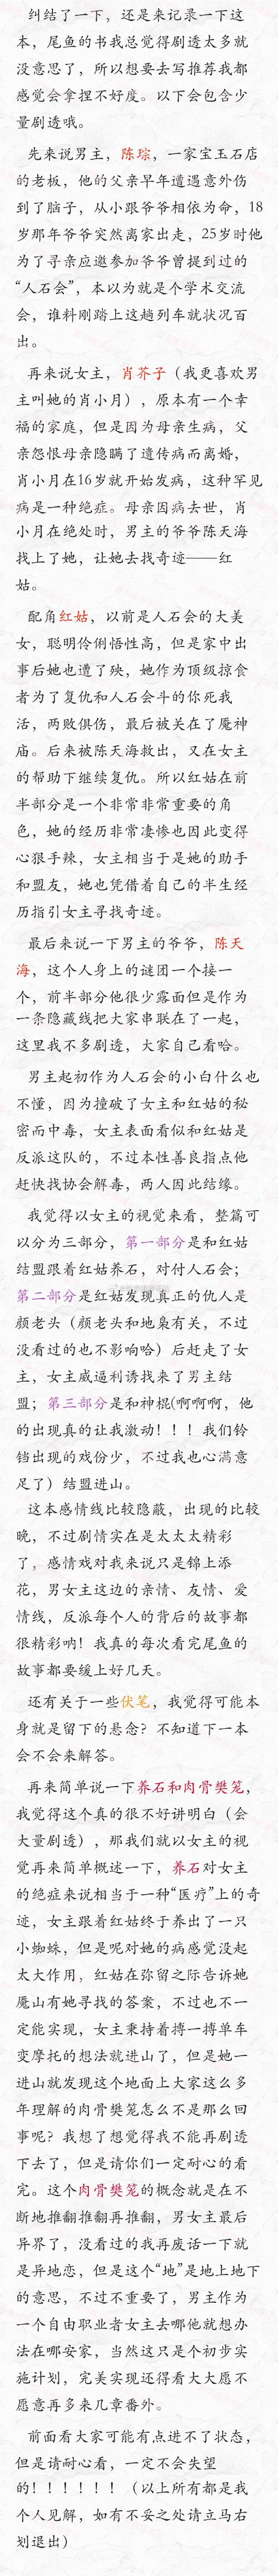 纠结了一下，还是来记录一下这
本，尾鱼的书我总觉得剧透太多就
没意思了，所以想要去写推荐我都
感觉会拿捏不好度。以下会包含少
量剧透哦。
先来说男主，陈琮，一家宝玉石店
的老板，他的父亲早年遭遇意外伤
到了脑子，从小跟爷爷相依为命，18
岁那年爷爷突然离家出走，25岁时他
为了寻亲应邀参加爷爷曾提到过的
“人石会”，本以为就是个学术交流
会，谁料刚踏上这趟列车就状况百
出。
再来说女主，肖芥子（我更喜欢男
主叫她的肖小月），原本有一个幸
福的家庭，但是因为母亲生病，父
亲怨恨母亲隐瞒了遗传病而离婚，
肖小月在16岁就开始发病，这种罕见
病是一种绝症。母亲因病去世，肖
小月在绝处时，男主的爷爷陈天海
找上了她，让她去找奇迹——红
姑。
配角红姑，以前是人石会的大美
女，聪明伶俐悟性高，但是家中出
事后她也遭了殃，她作为顶级掠食
者为了复仇和人石会斗的你死我
活，两败俱伤，最后被关在了魇神
庙。后来被陈天海救出，又在女主
的帮助下继续复仇。所以红姑在前
半部分是一个非常非常重要的角
色，她的经历非常凄惨也因此变得
心狠手辣，女主相当于是她的助手
和盟友，她也凭借着自己的半生经
历指引女主寻找奇迹。
最后来说一下男主的爷爷，陈天
海，这个人身上的谜团一个接一
个，前半部分他很少露面但是作为
一条隐藏线把大家串联在了一起，
这里我不多剧透，大家自己看哈。
男主起初作为人石会的小白什么也
不懂，因为撞破了女主和红姑的秘
密而中毒，女主表面看似和红姑是
反派这队的，不过本性善良指点他
赶快找协会解毒，两人因此结缘。
我觉得以女主的视觉来看，整篇可
以分为三部分，第一部分是和红姑
结盟跟着红姑养石，对付人石会；
第二部分是红姑发现真正的仇人是
颜老头（颜老头和地枭有关，不过
没看过的也不影响哈）后赶走了女
主，女主威逼利诱找来了男主结
盟；第三部分是和神棍(啊啊啊，他
的出现真的让我激动！！！我们铃
铛出现的戏份少，不过我也心满意
足了）结盟进山。
这本感情线比较隐蔽，出现的比较
晚，不过剧情实在是太太太精彩
了，感情戏对我来说只是锦上添
花，男女主这边的亲情、友情、爱
情线，反派每个人的背后的故事都
很精彩呐！我真的每次看完尾鱼的
故事都要缓上好几天。
还有关于一些伏笔，我觉得可能本
身就是留下的悬念？不知道下一本
会不会来解答。
再来简单说一下养石和肉骨樊笼，
我觉得这个真的很不好讲明白（会
大量剧透），那我们就以女主的视
觉再来简单概述一下，养石对女主
的绝症来说相当于一种“医疗”上的奇
迹，女主跟着红姑终于养出了一只
小蜘蛛，但是呢对她的病感觉没起
太大作用，红姑在弥留之际告诉她
魇山有她寻找的答案，不过也不一
定能实现，女主秉持着搏一搏单车
变摩托的想法就进山了，但是她一
进山就发现这个地面上大家这么多
年理解的肉骨樊笼怎么不是那么回
事呢？我想了想觉得我不能再剧透
下去了，但是请你们一定耐心的看
完。这个肉骨樊笼的概念就是在不
断地推翻推翻再推翻，男女主最后
异界了，没看过的我再废话一下就
是异地恋，但是这个“地”是地上地下
的意思，不过不重要了，男主作为
一个自由职业者女主去哪他就想办
法在哪安家，当然这只是个初步实
施计划，完美实现还得看大大愿不
愿意再多来几章番外。
前面看大家可能有点进不了状态，
但是请耐心看，一定不会失望
的！！！！！！（以上所有都是我
个人见解，如有不妥之处请立马右
划退出）